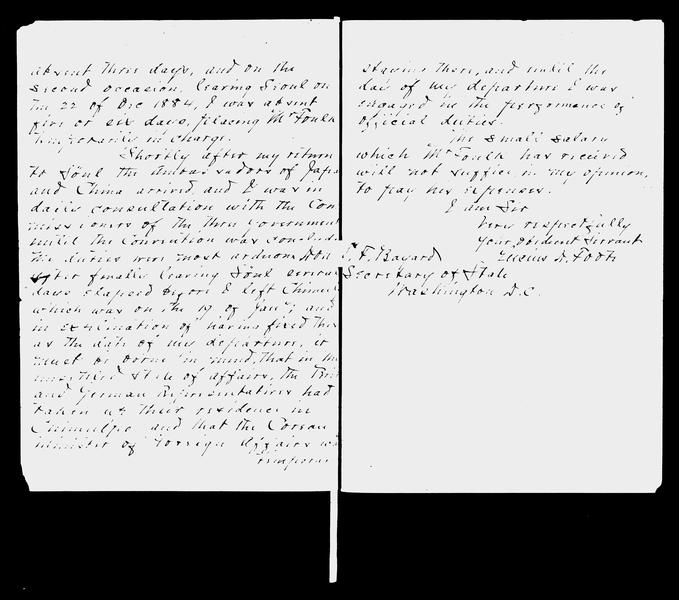 absent three days, and on the
second occasion, leaving Seoul on
the 22 of Dec 1884, I was absent
five or six days, placing Mr Foulk
temporarily in charge.
Shortly after my return
to Söul the Ambassadors of Japa
and China arrived, and I was in
daily consultation with the Com
missioners of the three Government
until the Convention was conclude
the duties were most arduous.
After finally leaving Söul several
days elapsed before I left Chemul
which was on the 19 of Jany; and
in explination of having fixed this
as the date of my departure, it
must be borne in mind, that in the
unsettled state of affairs, the Brit
and German Representatives had
taken up their residence in
Chimulpo and that the Corean
Minister of Foreign Affairs was
temporar
staying there, and until the
day of my departure I was
engaged in the performance of
official duties.
The small salary
which Mr Foulk has recieved
will not suffice in my opinion,
to pay his expenses.
I am Sir
Very respectfully
Your obedient servant
Lucius H. Foote
Hon T. F. Bayard
Secretary of State
Washington D.C.